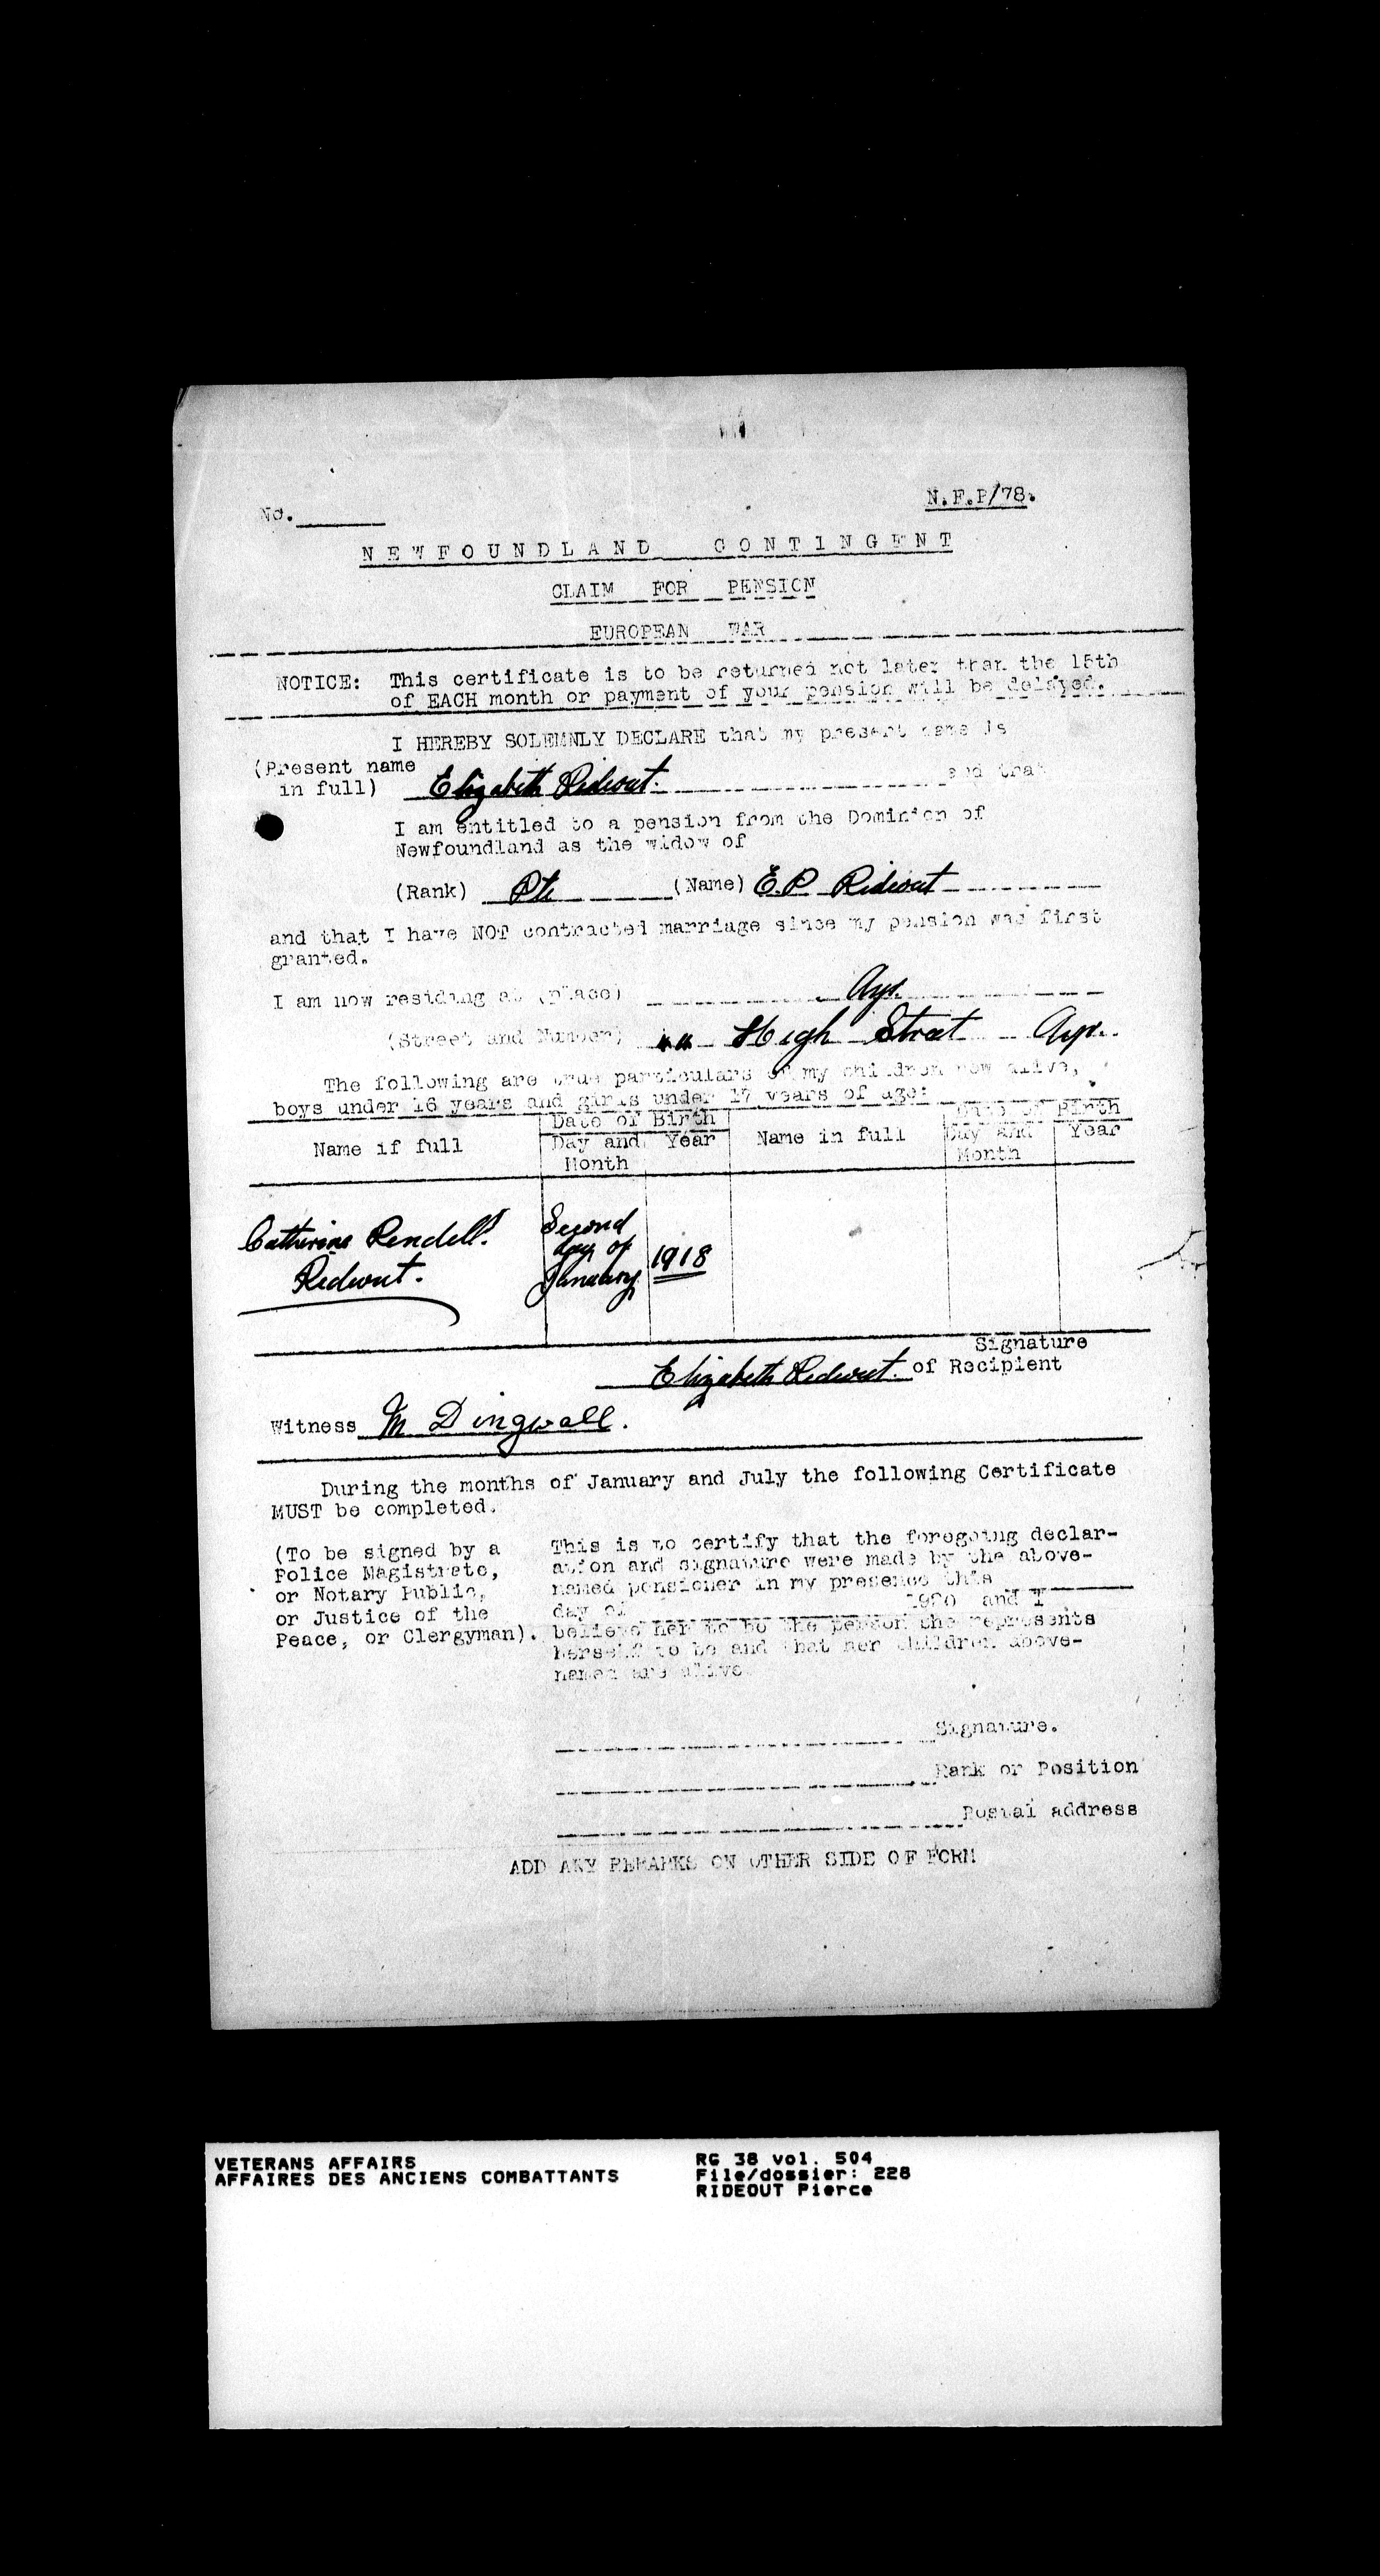 No.
N.F.P/78.
NEWFOUNDLAND CONTINGENT
CLAIM FOR PENSION
EUROPEAN WAR
NOTICE: This certificate is to be returned not later than the 15th
of EACH month or payment of your pension will be delayed.
I HEREBY SOLEMNLY DECLARE that my present name is
(Present name
in full) Elizabeth Rideout. and that
I am entitled to a pension from the Dominion of
Newfoundland as the widow of
(Rank) Pte (Name) E.P Rideout
and that I have NOT contracted marriage since my pension was first
granted.
I am now residing at (place) Ayr.
(Street and Number) High Street Ayr.
The following are true particulars of my children now alive,
boys under 16 years and girls under 17 years of age:
Date of Birth Date of Birth
Name if full Day and Year Name in full Day and Year
Month Month
Catherine Rendell Second
day of 1918
Rideout. January
Signature
Elizabeth Rideout. of Recipient
Witness M Dingwall.
During the months of January and July the following Certificate
MUST be completed.
(To be signed by a
Police Magistrate,
or Notary Public,
or Justice of the
Peace, or Clergyman).
This is to certify that the foregoing declar-
ation and signature were made by the above-
named pensioner in my presence this
day of 1920 and I
believe her to be the person she represents
herself to be and that her children above-
named are alive
Signature.
Rank or Position
Postal address
ADD ANY REMARKS ON OTHER SIDE OF FORM
VETERANS AFFAIRS
AFFAIRES DES ANCIENS COMBATTANTS
RG 38 vol. 504
File/dossier: 228
RIDEOUT Pierce